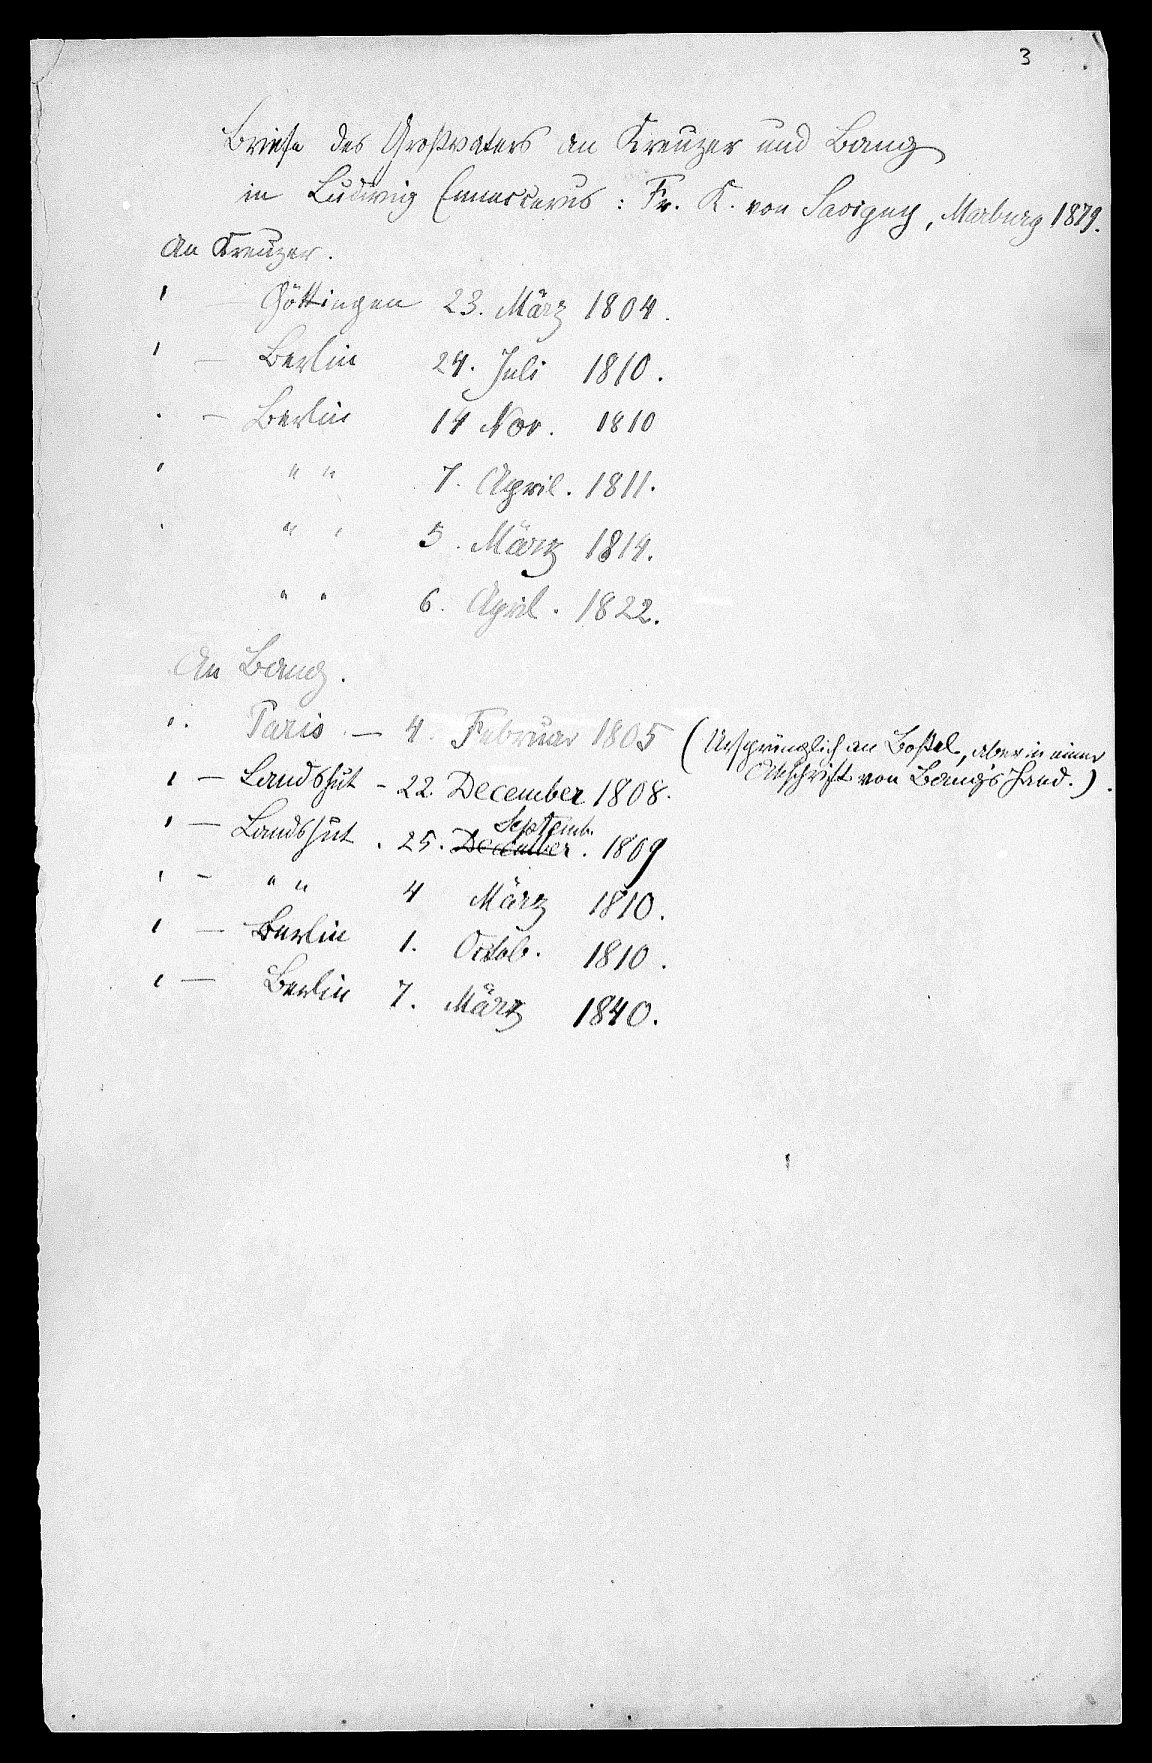 3
Briefe des Großvaters an Kreuzer und Bang
in Ludwig Enneccerus : Fr. K. von Savigny, Marburg 1879.
An Kreuzer.
" — Göttingen 23. März 1804.
" — Berlin 24. Juli 1810.
" — Berlin 14 Nov. 1810
" " " 7. April. 1811.
" " " 5. März 1814.
" " 6. April. 1822.
An Bang.
" Paris. — 4. Februar 1805 (Ursprünglich an Boßel, aber in einer
Abschrift von Bang's Hand.).
" — Landshut - 22. December 1808.
Septemb.
" — Landshut. 25. December. 1809
" - " " 4 März 1810.
" — Berlin 1. Octob. 1810.
" — Berlin 7. März 1840.